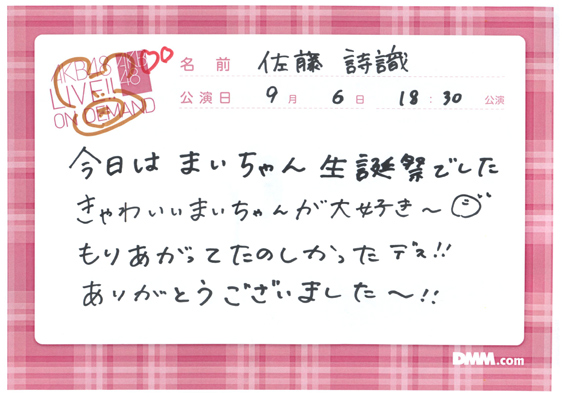 AKB48
LIVE!!
ON DEMAND
AKB
48
名前 佐藤 詩識
公演日 9月 6日 18:30 公演
今日は まいちゃん 生誕祭でした
きゃわいいまいちゃんが大好き〜
もりあがってたのしかったデス!!
ありがとうございました〜!!
DMM.com